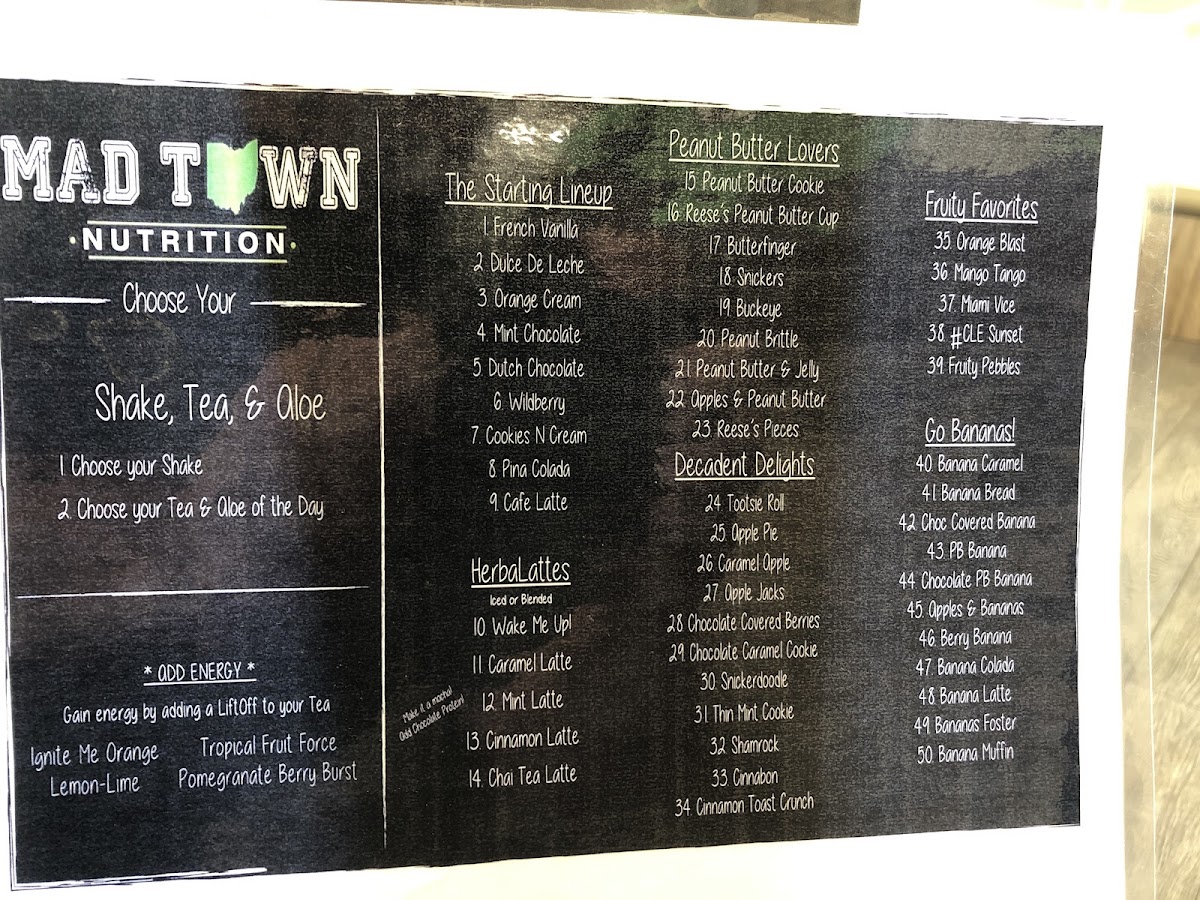 MAD TOWN
·NUTRITION·
Choose Your
Shake, Tea, & Aloe
1 Choose your Shake
2. Choose your Tea & Aloe of the Day
* ADD ENERGY *
Gain energy by adding a LiftOff to your Tea
Ignite Me Orange
Tropical Fruit Force
Lemon-Lime
Pomegranate Berry Burst
The Starting Lineup
1. French Vanilla
2. Dulce De Leche
3. Orange Cream
4. Mint Chocolate
5. Dutch Chocolate
6. Wildberry
7. Cookies N Cream
8. Pina Colada
9. Cafe Latte
HerbaLattes
Iced or Blended
10. Wake Me Up!
11 Caramel Latte
12. Mint Latte
13. Cinnamon Latte
14. Chai Tea Latte
Make it a mocha!
Add Chocolate Protein!
Peanut Butter Lovers
15. Peanut Butter Cookie
16. Reese's Peanut Butter Cup
17. Butterfinger
18. Snickers
19. Buckeye
20. Peanut Brittle
21 Peanut Butter & Jelly
22. Apples & Peanut Butter
23. Reese's Pieces
Decadent Delights
24. Tootsie Roll
25. Apple Pie
26. Caramel Apple
27. Apple Jacks
28. Chocolate Covered Berries
29. Chocolate Caramel Cookie
30. Snickerdoodle
31 Thin Mint Cookie
32. Shamrock
33. Cinnabon
34. Cinnamon Toast Crunch
Fruity Favorites
35. Orange Blast
36. Mango Tango
37. Miami Vice
38. #CLE Sunset
39. Fruity Pebbles
Go Bananas!
40. Banana Caramel
41 Banana Bread
42. Choc Covered Banana
43. PB Banana
44. Chocolate PB Banana
45. Apples & Bananas
46. Berry Banana
47. Banana Colada
48. Banana Latte
49. Bananas Foster
50. Banana Muffin